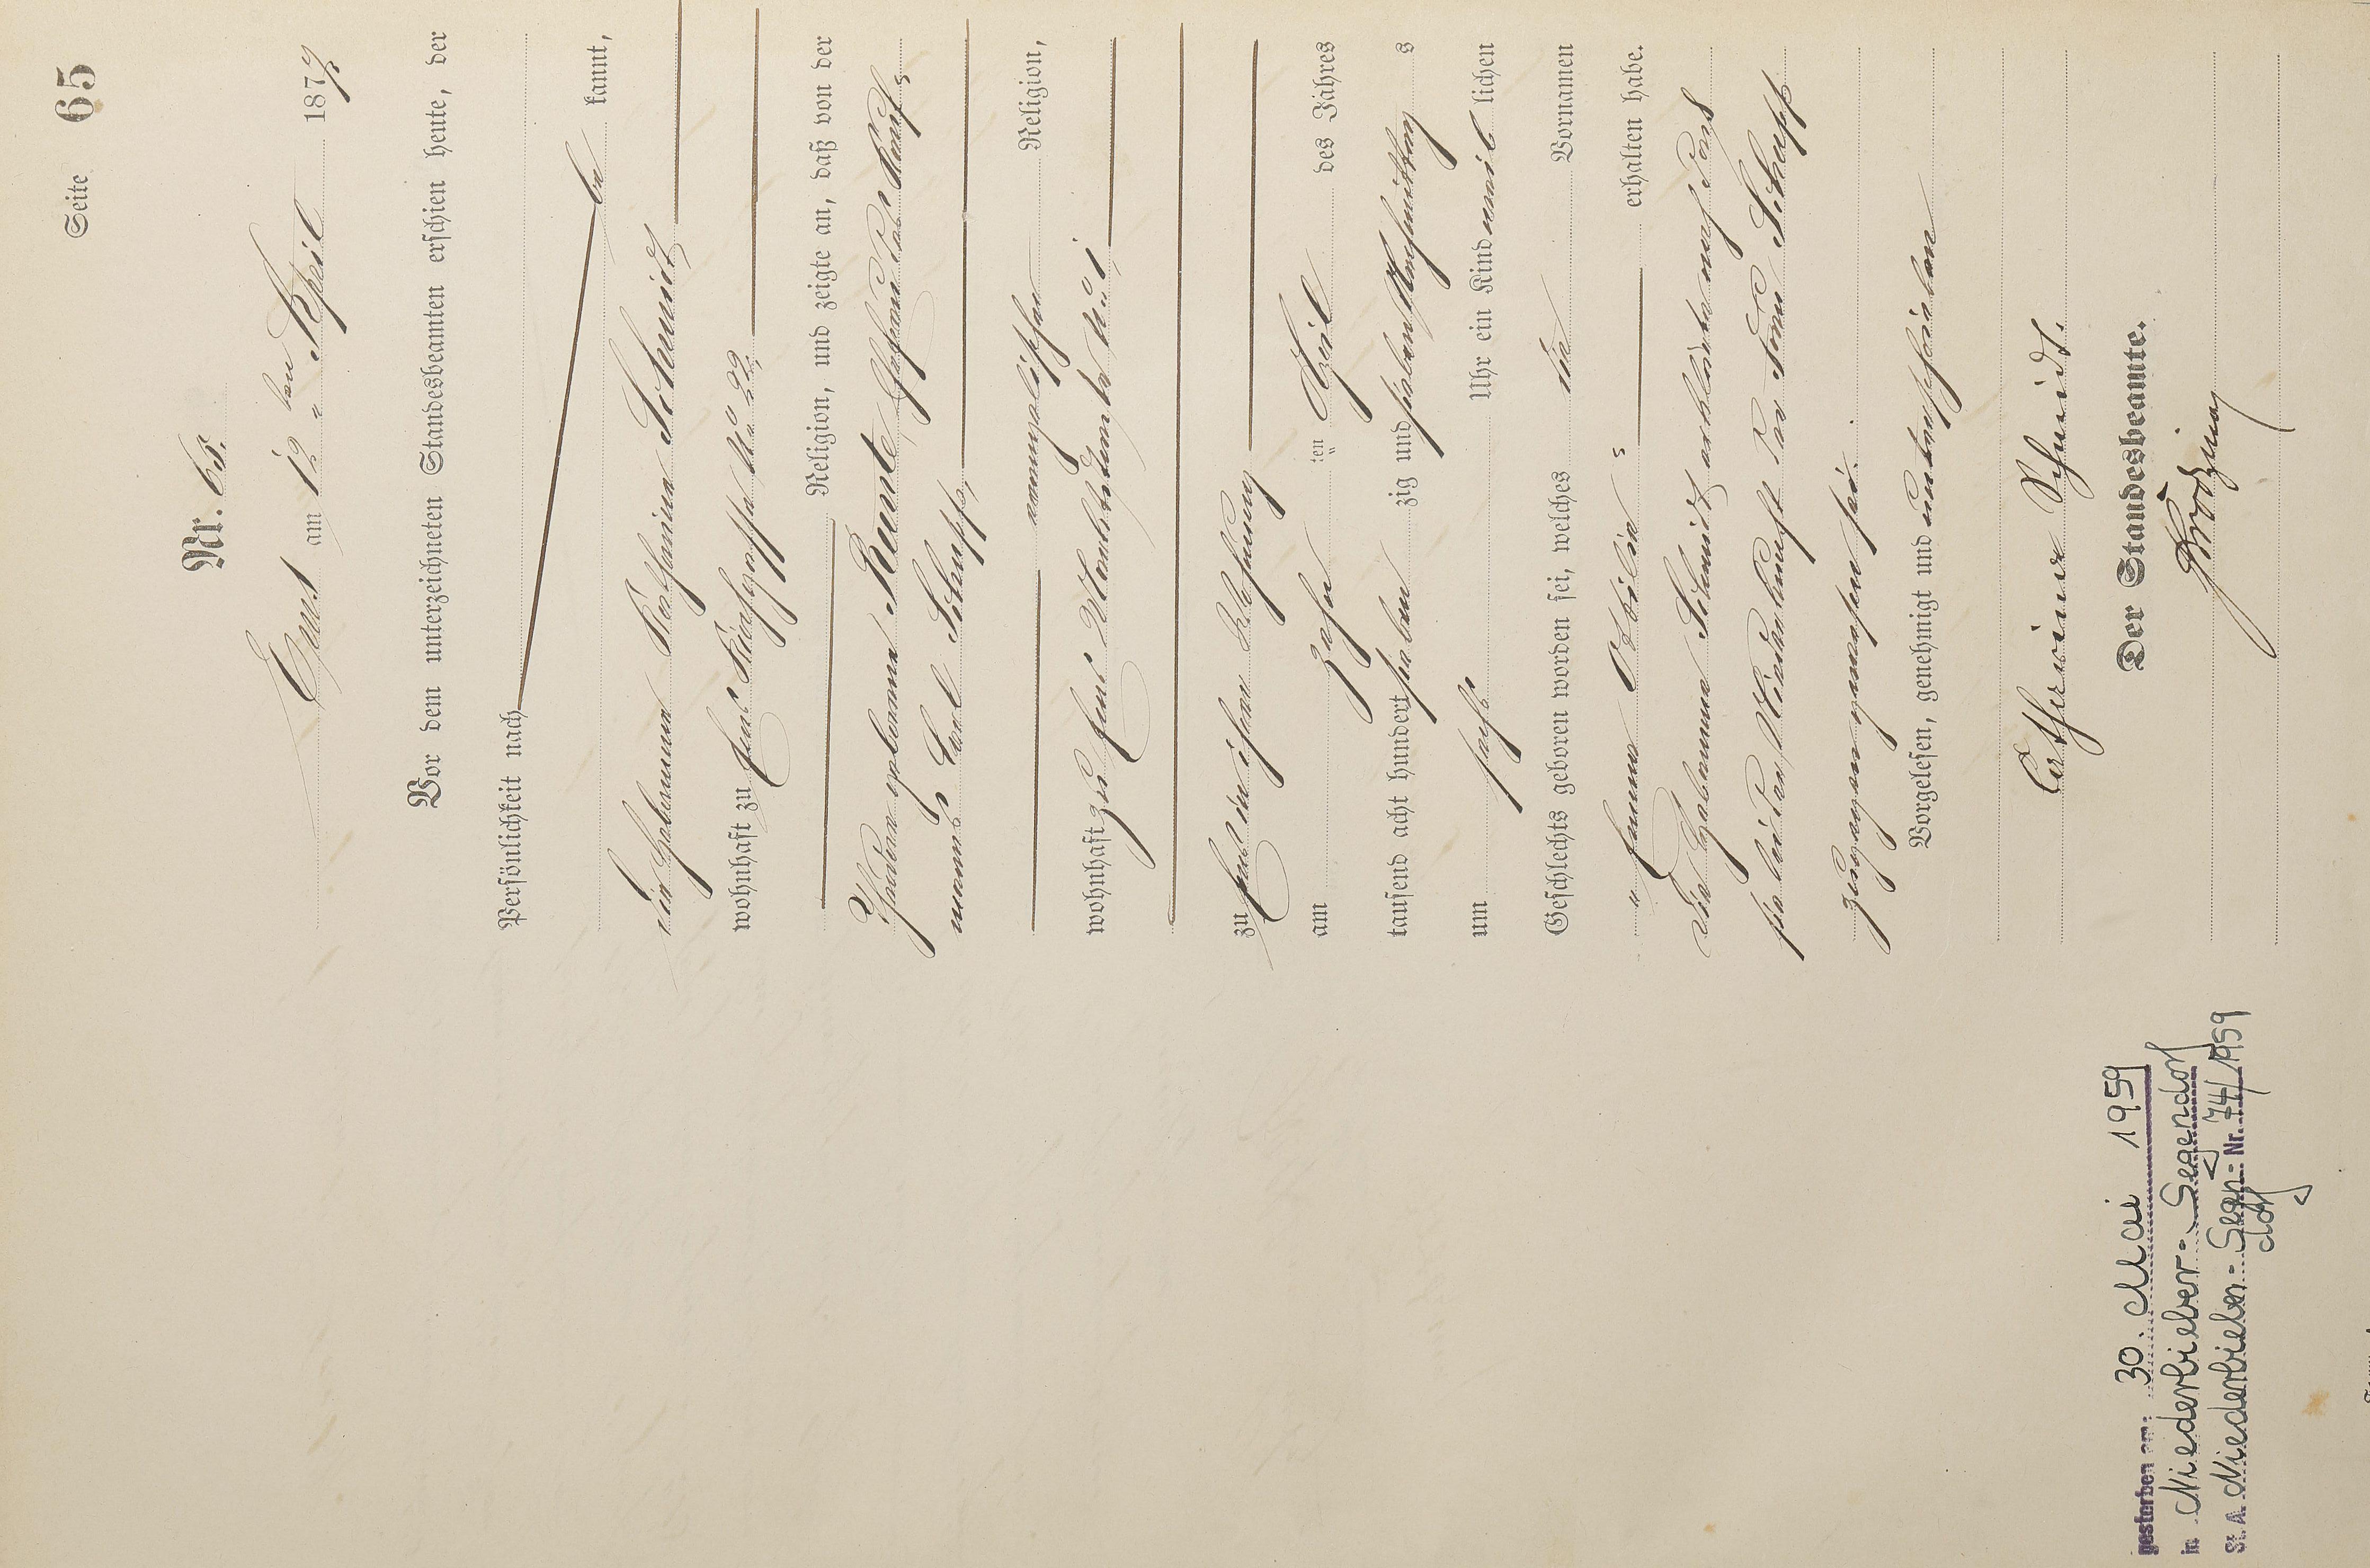 Seite 65
Nr. 65.
Ems am 12ten April 1879
Vor dem unterzeichneten Standesbeamten erschien heute, der
Persönlichkeit nach
be kannt,
die Hebamme Katharina Schmidt
wohnhaft zu Ems
Religion, und zeigte an, daß von der
geborene Remte, Ehefrau des Kauf-
manns Carl Schupp,
evangelischer Religion,
wohnhaft zu Ems
zu Ems in ihrer Wohnung
am zehnten April des Jahres
tausend acht hundert siebenzig und sieben Nachmittags
um sechs Uhr ein Kind weiblichen
Geschlechts geboren worden sei, welches die Vornamen
" Emma Ottilie " erhalten habe.
Die Hebamme Schmidt erklärte noch, daß
sie bei der Niederkunft der Frau Schupp
zugegen gewesen sei.
Vorgelesen, genehmigt und unterschrieben
Catherina Schmidt.
Der Standesbeamte.
gestorben am: 30. Mai 1959
in Niederbieber-Segendorf
St. A. Niederbieber-Segen- Nr. 74/1959
dorf